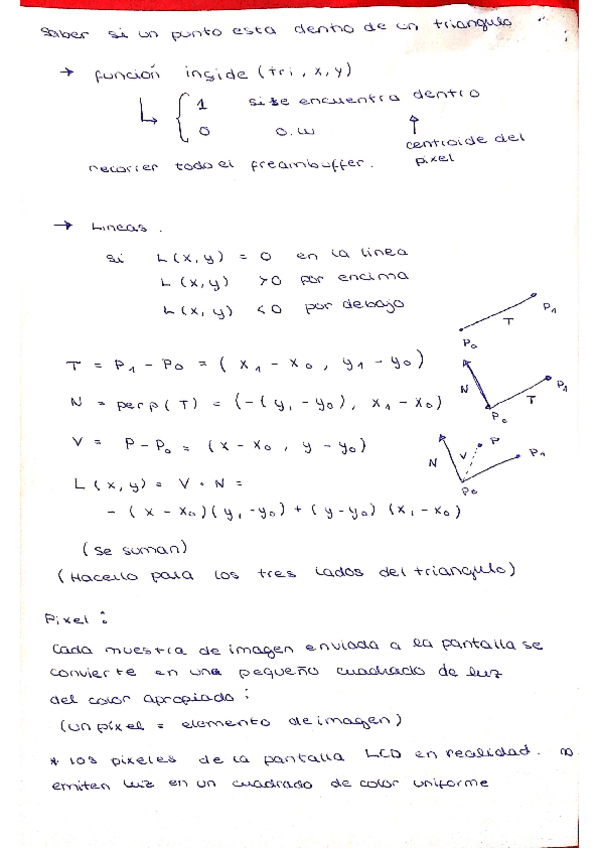 Saber si un punto esta dentro de un triangulo
→ función inside (tri, x, y)
1 si se encuentra dentro
0 o.w
centroide del
pixel
recorrer todo el freambuffer.
→ Lineas.
Si L(x, y) = 0 en la linea
L(x, y) >0 por encima
L(x, y) <0 por debajo
T = P1 - P0 = (x1 - x0, y1 - y0)
N = perp(T) = (-(y1 - y0), x1 - x0)
V = P - P0 = (x - x0, y - y0)
L(x, y) = V · N =
- (x - x0)(y1 - y0) + (y - y0)(x1 - x0)
P0 T P1
N P0 T P1
N V P P1 P0
(se suman)
(Hacerlo para los tres lados del triangulo)
Pixel:
Cada muestra de imagen enviada a la pantalla se
convierte en una pequeño cuadrado de luz
del color apropiado:
(un píxel = elemento de imagen)
* los pixeles de la pantalla LCD en realidad. no
emiten luz en un cuadrado de color uniforme